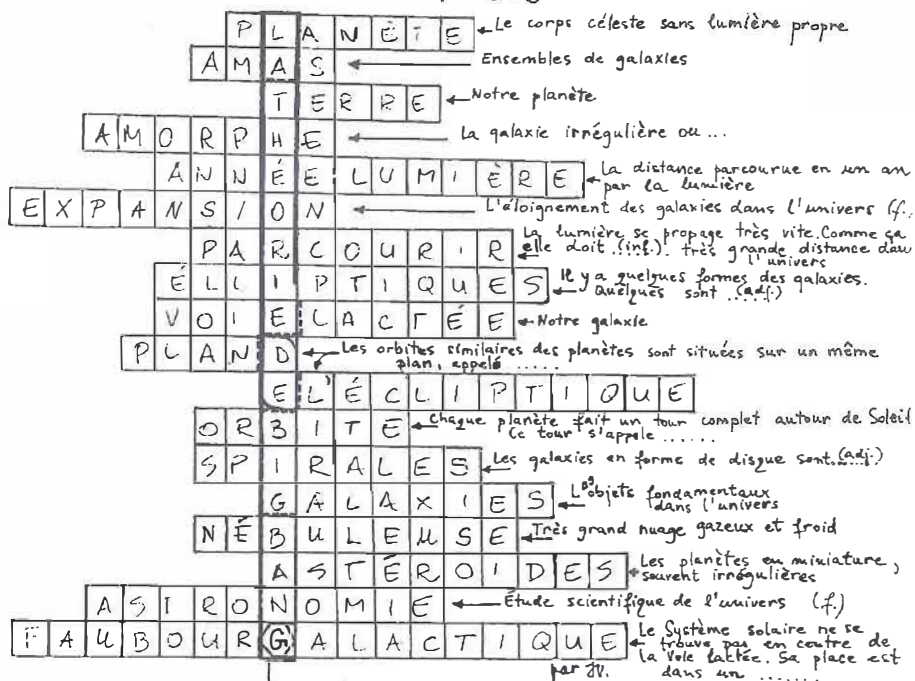 PLANÈTE Le corps céleste sans lumière propre
AMAS Ensembles de galaxies
TERRE Notre planète
AMORPHE La galaxie irrégulière ou ...
ANNÉE LUMIÈRE La distance parcourue en un an
par la lumière
EXPANSION L'éloignement des galaxies dans l'univers (f.
PARCOURIR La lumière se propage très vite. Comme ça
elle doit ..(inf.). très grande distance dau
l'univers
ÉLLIPTIQUES Il y a quelques formes des galaxies.
Quelques sont ..(adj.)
VOIE LACTÉE Notre galaxie
PLAN D Les orbites similaires des planètes sont situées sur un même
plan, appelé .....
E L'ÉCLIPTIQUE
ORBITE Chaque planète fait un tour complet autour de Soleil
Ce tour s'appele ......
SPIRALES Les galaxies en forme de disque sont..(adj.)
GALAXIES Les objets fondamentaux
dans l'univers
NÉBULEUSE Très grand nuage gazeux et froid
ASTÉROIDES Les planètes en miature,
souvent irrégulières
ASTRONOMIE Étude scientifique de l'univers (f.)
FAUBOURG GALACTIQUE Le Système solaire ne se
trouve pas en centre de
la Voie lactée. Sa place est
dans un .......
par JV.